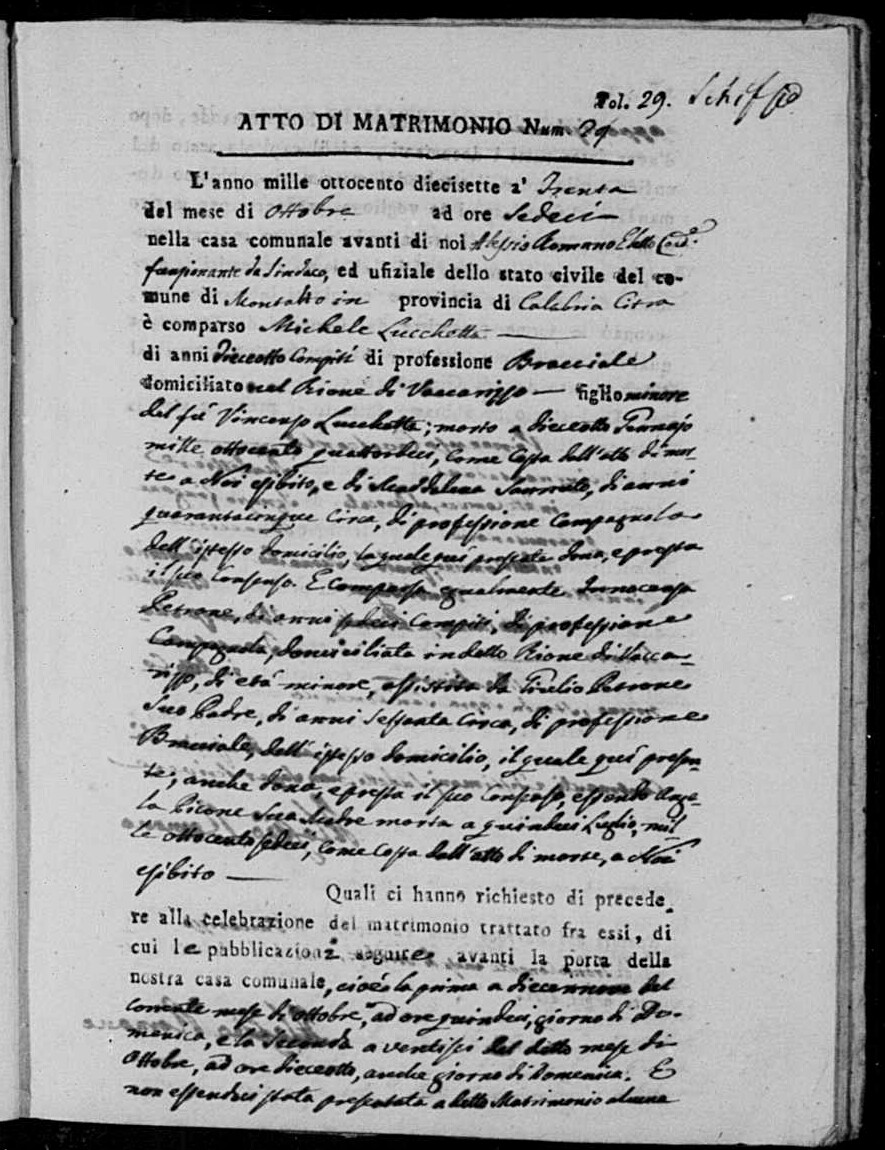 Fol. 29.
ATTO DI MATRIMONIO Num. 29
L'anno mille ottocento diecisette a' Trenta
del mese di Ottobre ad ore Sedeci
nella casa comunale avanti di noi Alessio Romano Eletto
funzionante da Sindaco, ed ufiziale dello stato civile del co-
mune di Montalto in provincia di Calabria Citra
è comparso Michele Lucchetta
di anni Dieceotto Compiti di professione Bracciale
domiciliato nel Rione di Vaccarizzo figlio minore
del fù Vincenzo Lucchetta; morto a dieceotto Gennajo
mille ottocento quattordeci, come costa dall'atto di mor
te a Noi esibito, e di Maddalena, di anni
quarantacinque circa, di professione Campagnola
dell'istesso domicilio, la quale quì presente dona, e presta
il suo Consenso. E Comparsa egualmente Innocenza
Petrone, di anni sedeci Compiti, di professione
Campagnola, domiciliata in detto Rione di Vacca-
rizzo, di età minore, assistita da Petrone
Suo Padre, di anni Sessanta Circa, di professione
Bracciale, dell'istesso domicilio, il quale quì presen-
te, anche dona, e presta il suo Consenso, essendo Ange-
la Picone Sua Madre morta a quindeci Luglio, mil
le ottocento sedeci, come Costa dall'atto di morte, a Noi
esibito
Quali ci hanno richiesto di precede
re alla celebrazione del matrimonio trattato fra essi, di
cui le pubblicazioni seguite avanti la porta della
nostra casa comunale, cioè la prima a diecennove del
corrente mese di Ottobre, ad ore quindeci, giorno di Do-
menica, e la Seconda a ventisei del detto mese di
Ottobre, ad ore dieceotto, anche giorno di Domenica. E
non essendoci stata presentata a detto Matrimonio alcuna